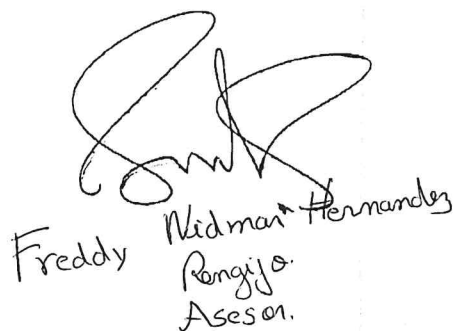 Freddy Widmar Hernandez
Rengijo.
Asesor.